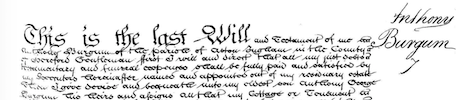 This is the last Will and Testament of me
Anthony Burgum of the parish of Aston Ingham in the County
of Hereford Gentleman first I will and direct that all my just debts
funeral expences shall be fully paid and satisfied by
my Executors hereinafter named and appointed out of my personal estate
I give devise and bequeath unto my eldest son Anthony George
Burgum his heirs and assigns all that my Cottage or Tenement
Anthony
Burgum